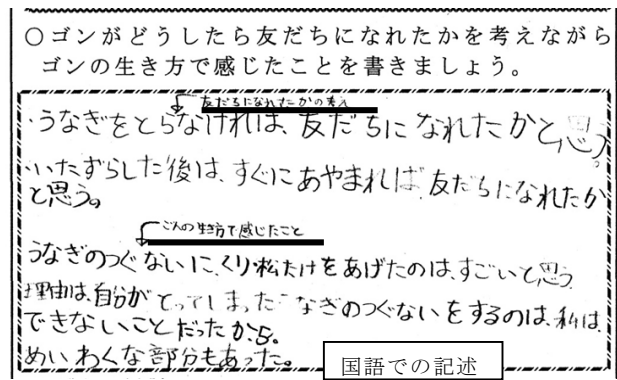 ○ゴンがどうしたら友だちになれたかを考えながら
ゴンの生き方で感じたことを書きましょう。
友だちになれたかの考え
・うなぎをとらなければ、友だちになれたかと思う。
・いたずらした後は、すぐにあやまれば友だちになれたか
と思う。
ごんの生き方で感じたこと
うなぎのつぐないに、くり・松たけをあげたのは、すごいと思う
理由は、自分がとってしまったうなぎのつぐないをするのは、私は、
できないことだったから。
めいわくな部分もあった。
国語での記述